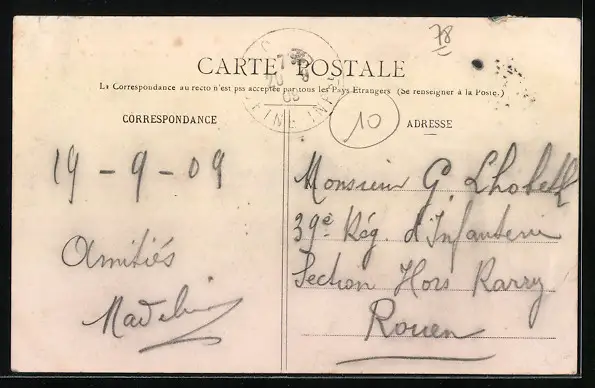 78
CARTE POSTALE
La Correspondance au recto n'est pas acceptée par tous les Pays Etrangers (Se renseigner à la Poste.)
CORRESPONDANCE
10
ADRESSE
19 - 9 - 09
Amitiés
Monsieur G.
39e Rég. d'Infanterie
Section Hors
Rouen
SEINE INF